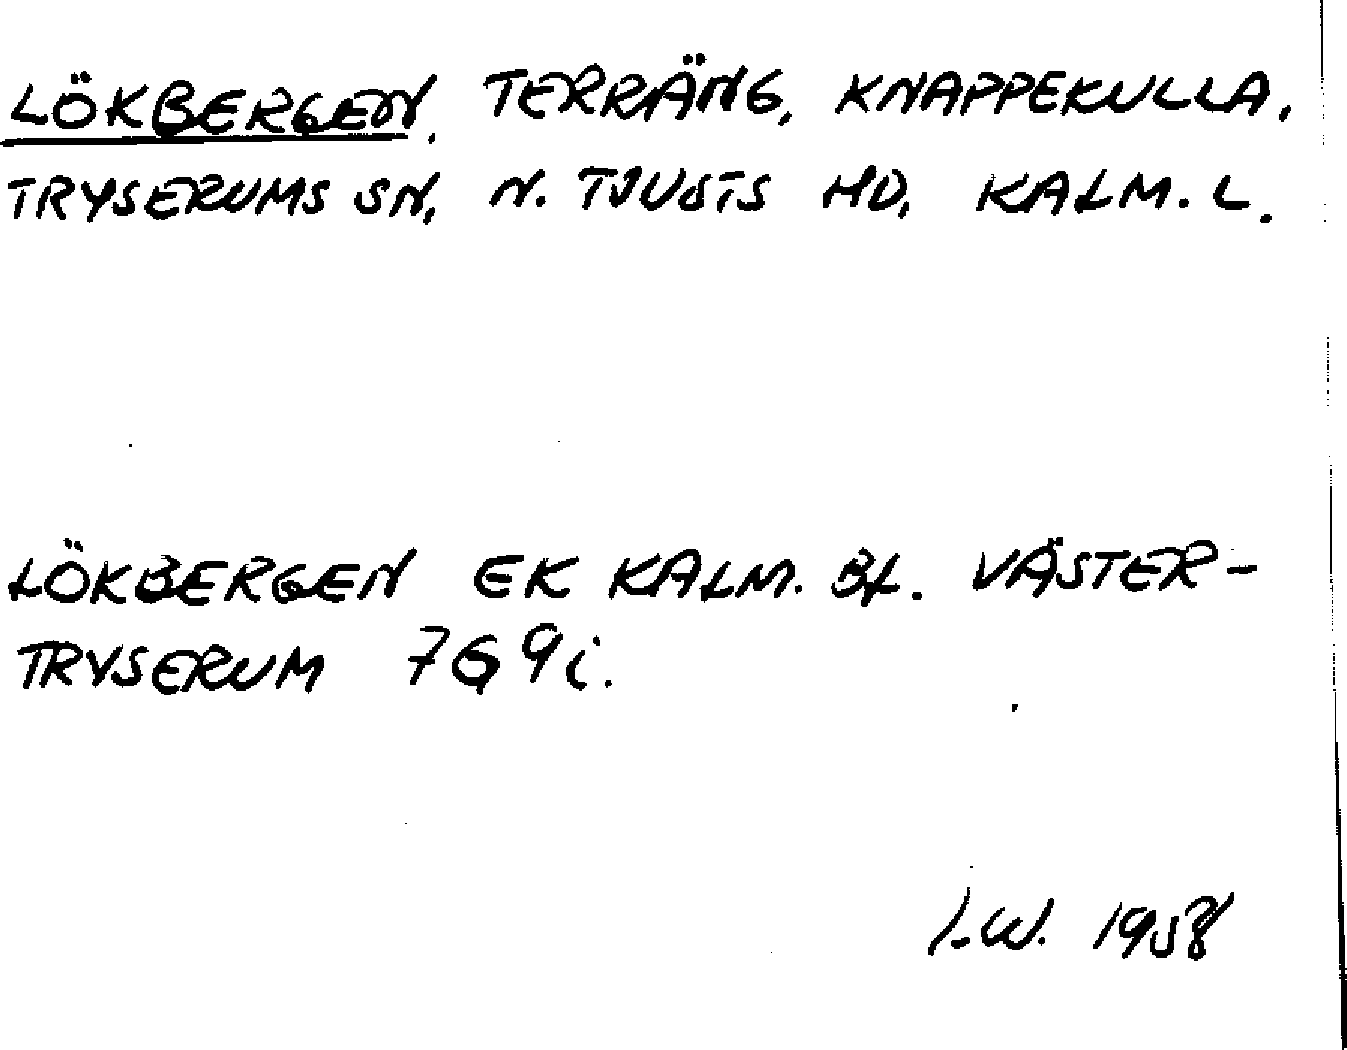 LÖKBERGEN, TERRÄNG, KNAPPEKULLA,
TRYSERUMS SN, N. TJUSTS HD, KALM. L.
LÖKBERGEN EK KALM. BL. VÄSTER-
TRYSERUM 7G9i.
I.W. 1958